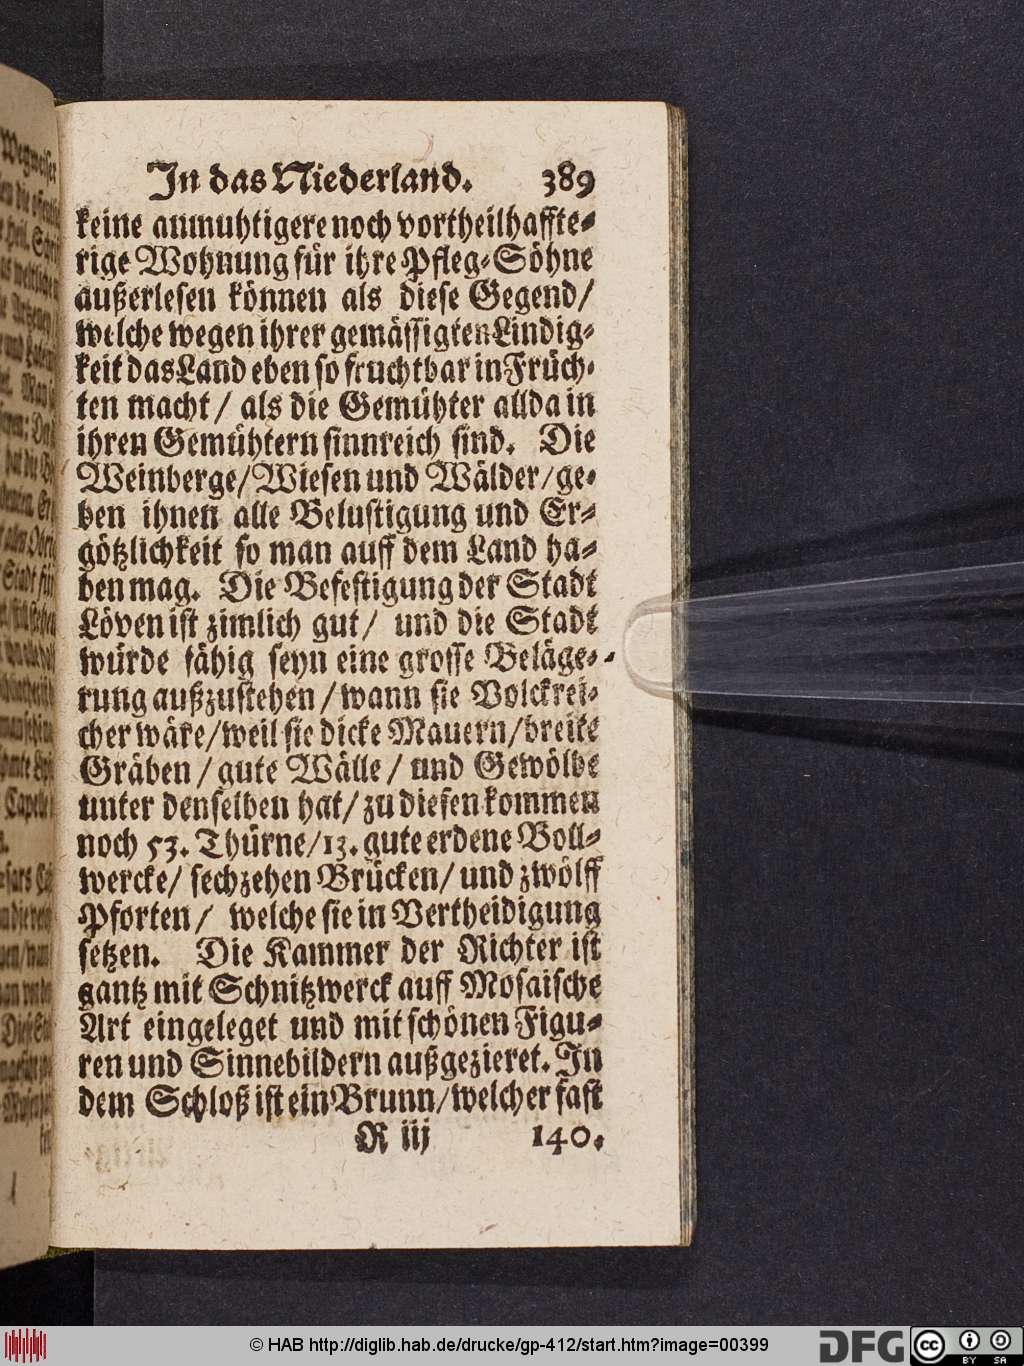 In das Niederland. 389
keine anmuhtigere noch vortheilhaffte-
rige Wohnung für ihre Pfleg-Söhne
außerlesen können als diese Gegend/
welche wegen ihrer gemässigten Lindig-
keit das Land eben so fruchtbar in Früch-
ten macht/ als die Gemühter allda in
ihren Gemühtern sinnreich sind. Die
Weinberge/ Wiesen und Wälder/ ge-
ben ihnen alle Belustigung und Er-
götzlichkeit so man auff dem Land ha-
ben mag. Die Befestigung der Stadt
Löven ist zimlich gut/ und die Stadt
würde fähig seyn eine grosse Beläge-
rung außzustehen/ wann sie Volckrei-
cher wäre/ weil sie dicke Mauern/ breite
Gräben/ gute Wälle/ und Gewölbe
unter denselben hat/ zu diesen kommen
noch 53. Thürne/ 13. gute erdene Boll-
wercke/ sechzehen Brücken/ und zwölff
Pforten/ welche sie in Vertheidigung
setzen. Die Kammer der Richter ist
gantz mit Schnitzwerck auff Mosaische
Art eingeleget und mit schönen Figu-
ren und Sinnebildern außgezieret. In
dem Schloß ist ein Brunn/ welcher fast
R iij 140.
© HAB http://diglib.hab.de/drucke/gp-412/start.htm?image=00399
DFG
cc BY SA